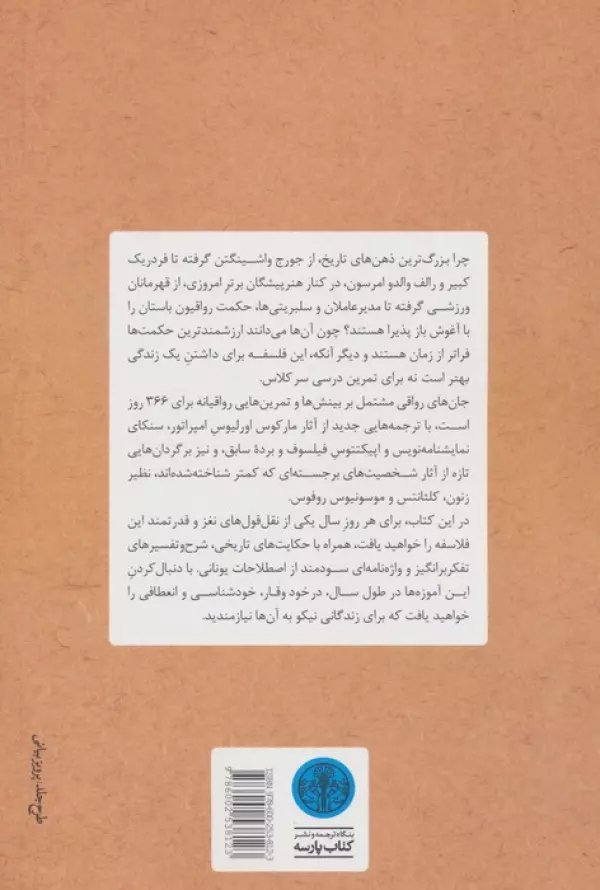 چرا بزرگ‌ترین ذهن‌های تاریخ، از جورج واشینگتن گرفته تا فردریک
کبیر و رالف والدو امرسون، در کنار هنرپیشگان برترِ امروزی، از قهرمانان
ورزشی گرفته تا مدیرعاملان و سلبریتی‌ها، حکمت رواقیون باستان را
با آغوش باز پذیرا هستند؟ چون آن‌ها می‌دانند ارزشمندترین حکمت‌ها
فراتر از زمان هستند و دیگر آنکه، این فلسفه برای داشتنِ یک زندگی
بهتر است نه برای تمرین درسی سر کلاس.
جان‌های رواقی مشتمل بر بینش‌ها و تمرین‌هایی رواقیانه برای ۳۶۶ روز
است، با ترجمه‌هایی جدید از آثار مارکوس اورلیوسِ امپراتور، سنکای
نمایشنامه‌نویس و اپیکتتوسِ فیلسوف و بردهٔ سابق، و نیز برگردان‌هایی
تازه از آثار شخصیت‌های برجسته‌ای که کمتر شناخته‌شده‌اند، نظیر
زنون، کلئانتس و موسونیوس روفوس.
در این کتاب، برای هر روزِ سال یکی از نقل‌قول‌های نغز و قدرتمند این
فلاسفه را خواهید یافت، همراه با حکایت‌های تاریخی، شرح‌وتفسیرهای
تفکربرانگیز و واژه‌نامه‌ای سودمند از اصطلاحات یونانی. با دنبال‌کردنِ
این آموزه‌ها در طول سال، در خود وقار، خودشناسی و انعطافی را
خواهید یافت که برای زندگانی نیکو به آن‌ها نیازمندید.
طرح جلد: پرویز بیانی
ISBN 978-600-253-812-3
9786002538123
بنگاه ترجمه و نشر
کتاب پارسه